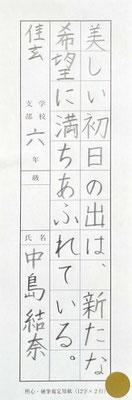 美しい初日の出は、新たな
希望に満ちあふれている。
学校
支部
佳玄
六年
級
氏名
中島結奈
桐心・硬筆規定用紙（12字×2行）